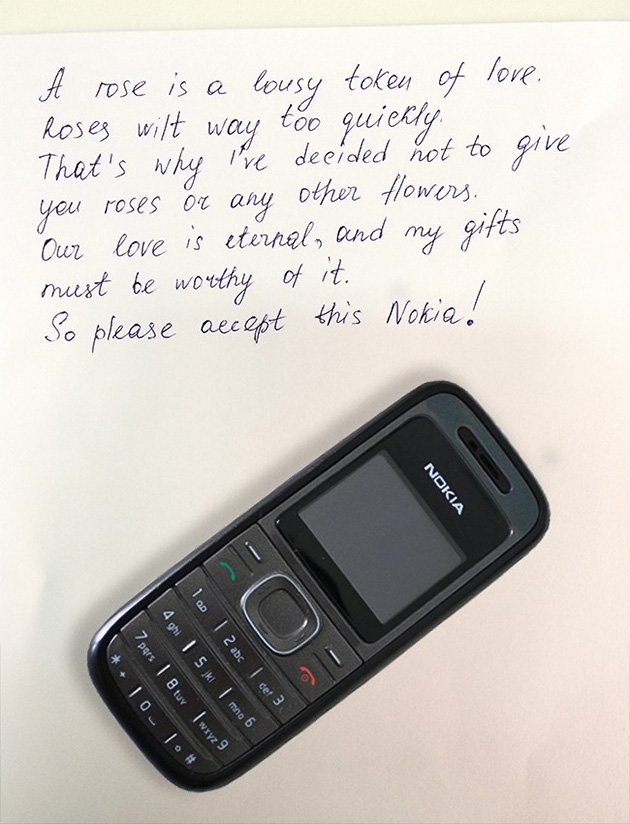 A rose is a lousy token of love.
Roses wilt way too quickly.
That's why I've decided not to give
you roses or any other flowers.
Our love is eternal, and my gifts
must be worthy of it.
So please accept this Nokia!
NOKIA
1 ao
2 abc
def 3
4 ghi
5 jkl
mno 6
7 pqrs
8 tuv
wxyz 9
* +
0
#